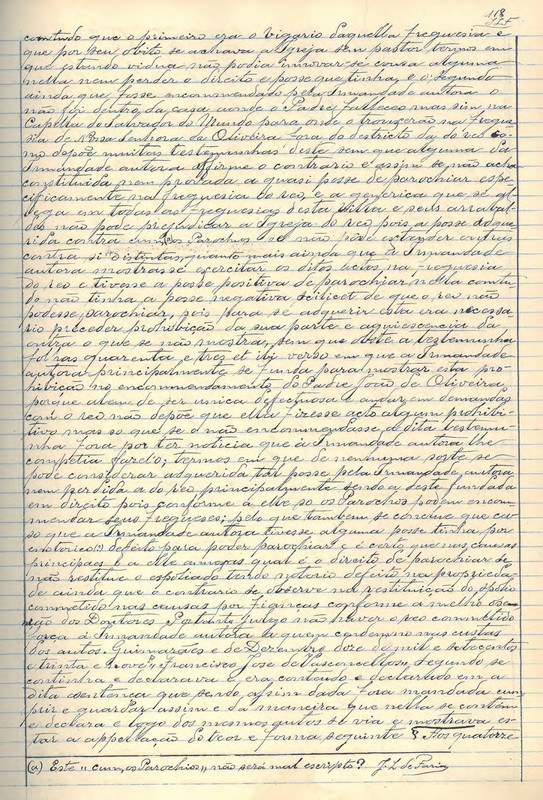 118
comtudo que o primeiro era o vigario daquella freguesia e
que por seu obito se achava a Igreja sem pastor termos em
que estando viuva não podia innovar-se cousa alguma
nella nem perder o direito e posse que tinha, e o segundo
ainda que fosse encommendado pela Irmandade autora o
não foi dentro da casa aonde o Padre falleceo mas sim na
Capella do Salvador do Mundo para onde o trouxerão na Fregue
sia de Nossa Senhora da Oliveira fora do destricto da do reo co-
mo depoê muitas testemunhas deste sem que alguma da
Irmandade autora affirme o contrario e assim se não acha
constituida nem provada a quasi posse de parochiar espe-
cificamente na freguesia do reo, e a generica que se al-
lega em todas as freguesias desta Villa e seus arrabal-
des não pode prejudicar a Igreja do reo pois a posse adque-
rida contra cum, os Parochos se não pode estender outras
contra si distintas, quanto mais ainda que a Irmandade
autora mostrasse exercitar os ditos actos na freguesia
do reo e tivesse a posse positiva de parochiar nella comtu-
do não tinha a posse negativa scilicet de que o reo não
podesse parochiar, pois para se adquerir esta era necessa
rio preceder prohibição da sua parte e aquiescencia da
outra o que se não mostra, sem que obste a testemunha
folhas quarenta e tres et ibi verso em que a Irmandade
autora principalmente se funda para mostrar esta pro-
hibição no encommendamento do Padre João de Oliveira,
porque alem de ser unica defectuosa e andar em demandas
com o reo não depoê que ella fizesse acto algum prohibi-
tivo mas so que se o não encommendasse a dita testemu-
nha fora por ter noticia que á Irmandade autora lhe
competia fazel-o; termos em que de nenhuma sorte se
pode considerar adquerida tal posse pela Irmandade autora
nem perdida a do reo principalmente sendo a deste fundada
em direito pois conforme á elle so os Parochos podem encom-
mendar seus freguezes; pelo que tambem se conclue que ca-
so que a Irmandade autora tivesse alguma posse tinha por
enotorico(?) defeito para poder parochiar e é certo que nas causas
principaes e a elle annexas qual é o direito de parochiar se
não restitue o espoliado tendo notorio defeito na propriedad-
de ainda que o contrario se observe na restituição do espolio
commettido nas causas por figincas conforme a melhor
dos Doutores. Portanto julgo não haver o reo commettido
força á Irmandade autora a quem condemno nas custas
dos autos. Guimarães e de Dezembro doze de mil e setecentos
e trinta e nove. Francisco José de Vasconcellos, segundo se
continha e declarava e era contendo e declarado em a
dita sentença que sendo assim dada fora mandada cum
prir e guardar assim e da maneira que nella se contêm
e declara e logo dos mesmos autos se via e mostrava es-
tar a appellação do teor e forma seguinte § Aos quatorze
(a) Este "cum, os Parochios" não será mal escripto? J. L. de Faria